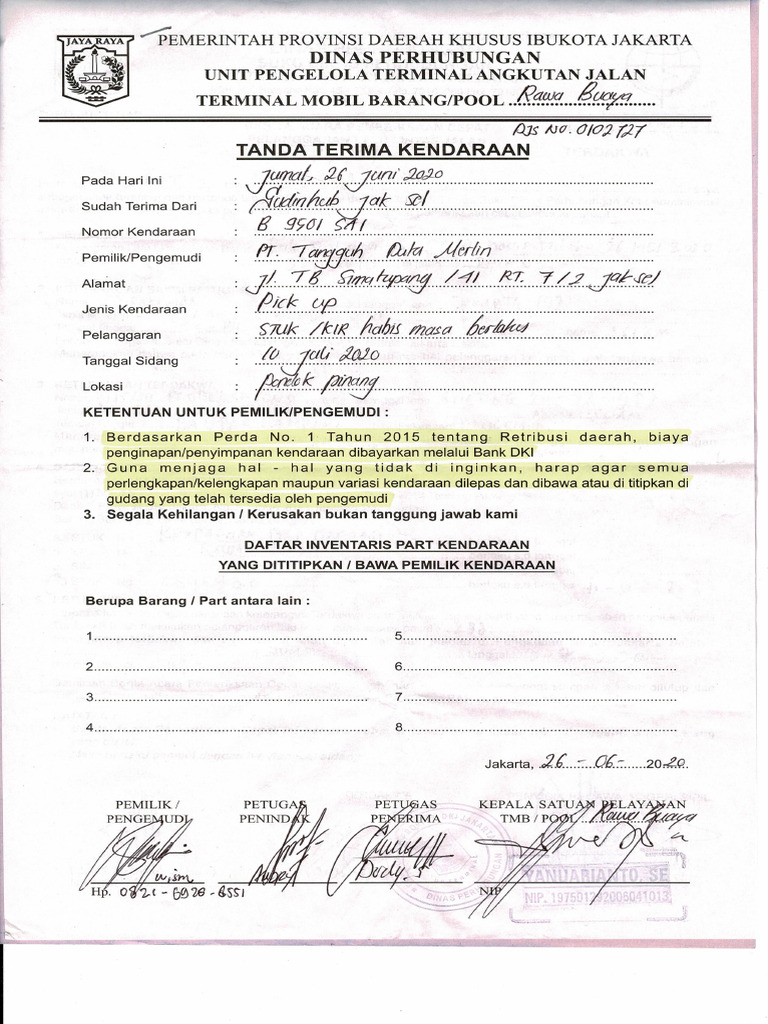 JAYA RAYA
PEMERINTAH PROVINSI DAERAH KHUSUS IBUKOTA JAKARTA
DINAS PERHUBUNGAN
UNIT PENGELOLA TERMINAL ANGKUTAN JALAN
TERMINAL MOBIL BARANG/POOL Rawa Buaya
BJS No. 0102727
TANDA TERIMA KENDARAAN
Pada Hari Ini : Jumat, 26 Juni 2020
Sudah Terima Dari : Sudinhub jak sel
Nomor Kendaraan : B 9501 SAI
Pemilik/Pengemudi : PT. Tangguh Puta Merlin
Alamat : jl. TB Simatupang /41 RT. 7/2 jaksel
Jenis Kendaraan : Pick up
Pelanggaran : STUK /KIR habis masa berlaku
Tanggal Sidang : 10 juli 2020
Lokasi : pondok pinang
KETENTUAN UNTUK PEMILIK/PENGEMUDI :
1. Berdasarkan Perda No. 1 Tahun 2015 tentang Retribusi daerah, biaya
penginapan/penyimpanan kendaraan dibayarkan melalui Bank DKI
2. Guna menjaga hal - hal yang tidak di inginkan, harap agar semua
perlengkapan/kelengkapan maupun variasi kendaraan dilepas dan dibawa atau di titipkan di
gudang yang telah tersedia oleh pengemudi
3. Segala Kehilangan / Kerusakan bukan tanggung jawab kami
DAFTAR INVENTARIS PART KENDARAAN
YANG DITITIPKAN / BAWA PEMILIK KENDARAAN
Berupa Barang / Part antara lain :
1. 5.
2. 6.
3. 7.
4. 8.
Jakarta, 26 - 06 - 2020
PEMILIK / PENGEMUDI
PETUGAS PENINDAK
PETUGAS PENERIMA
KEPALA SATUAN PELAYANAN
TMB / POOL Rawa Buaya
Dudy. S
Hp. 0821-6926-8551
NIP.
YANUARIANTO, SE
NIP. 197501292006041013
DINAS PERHUBUNGAN